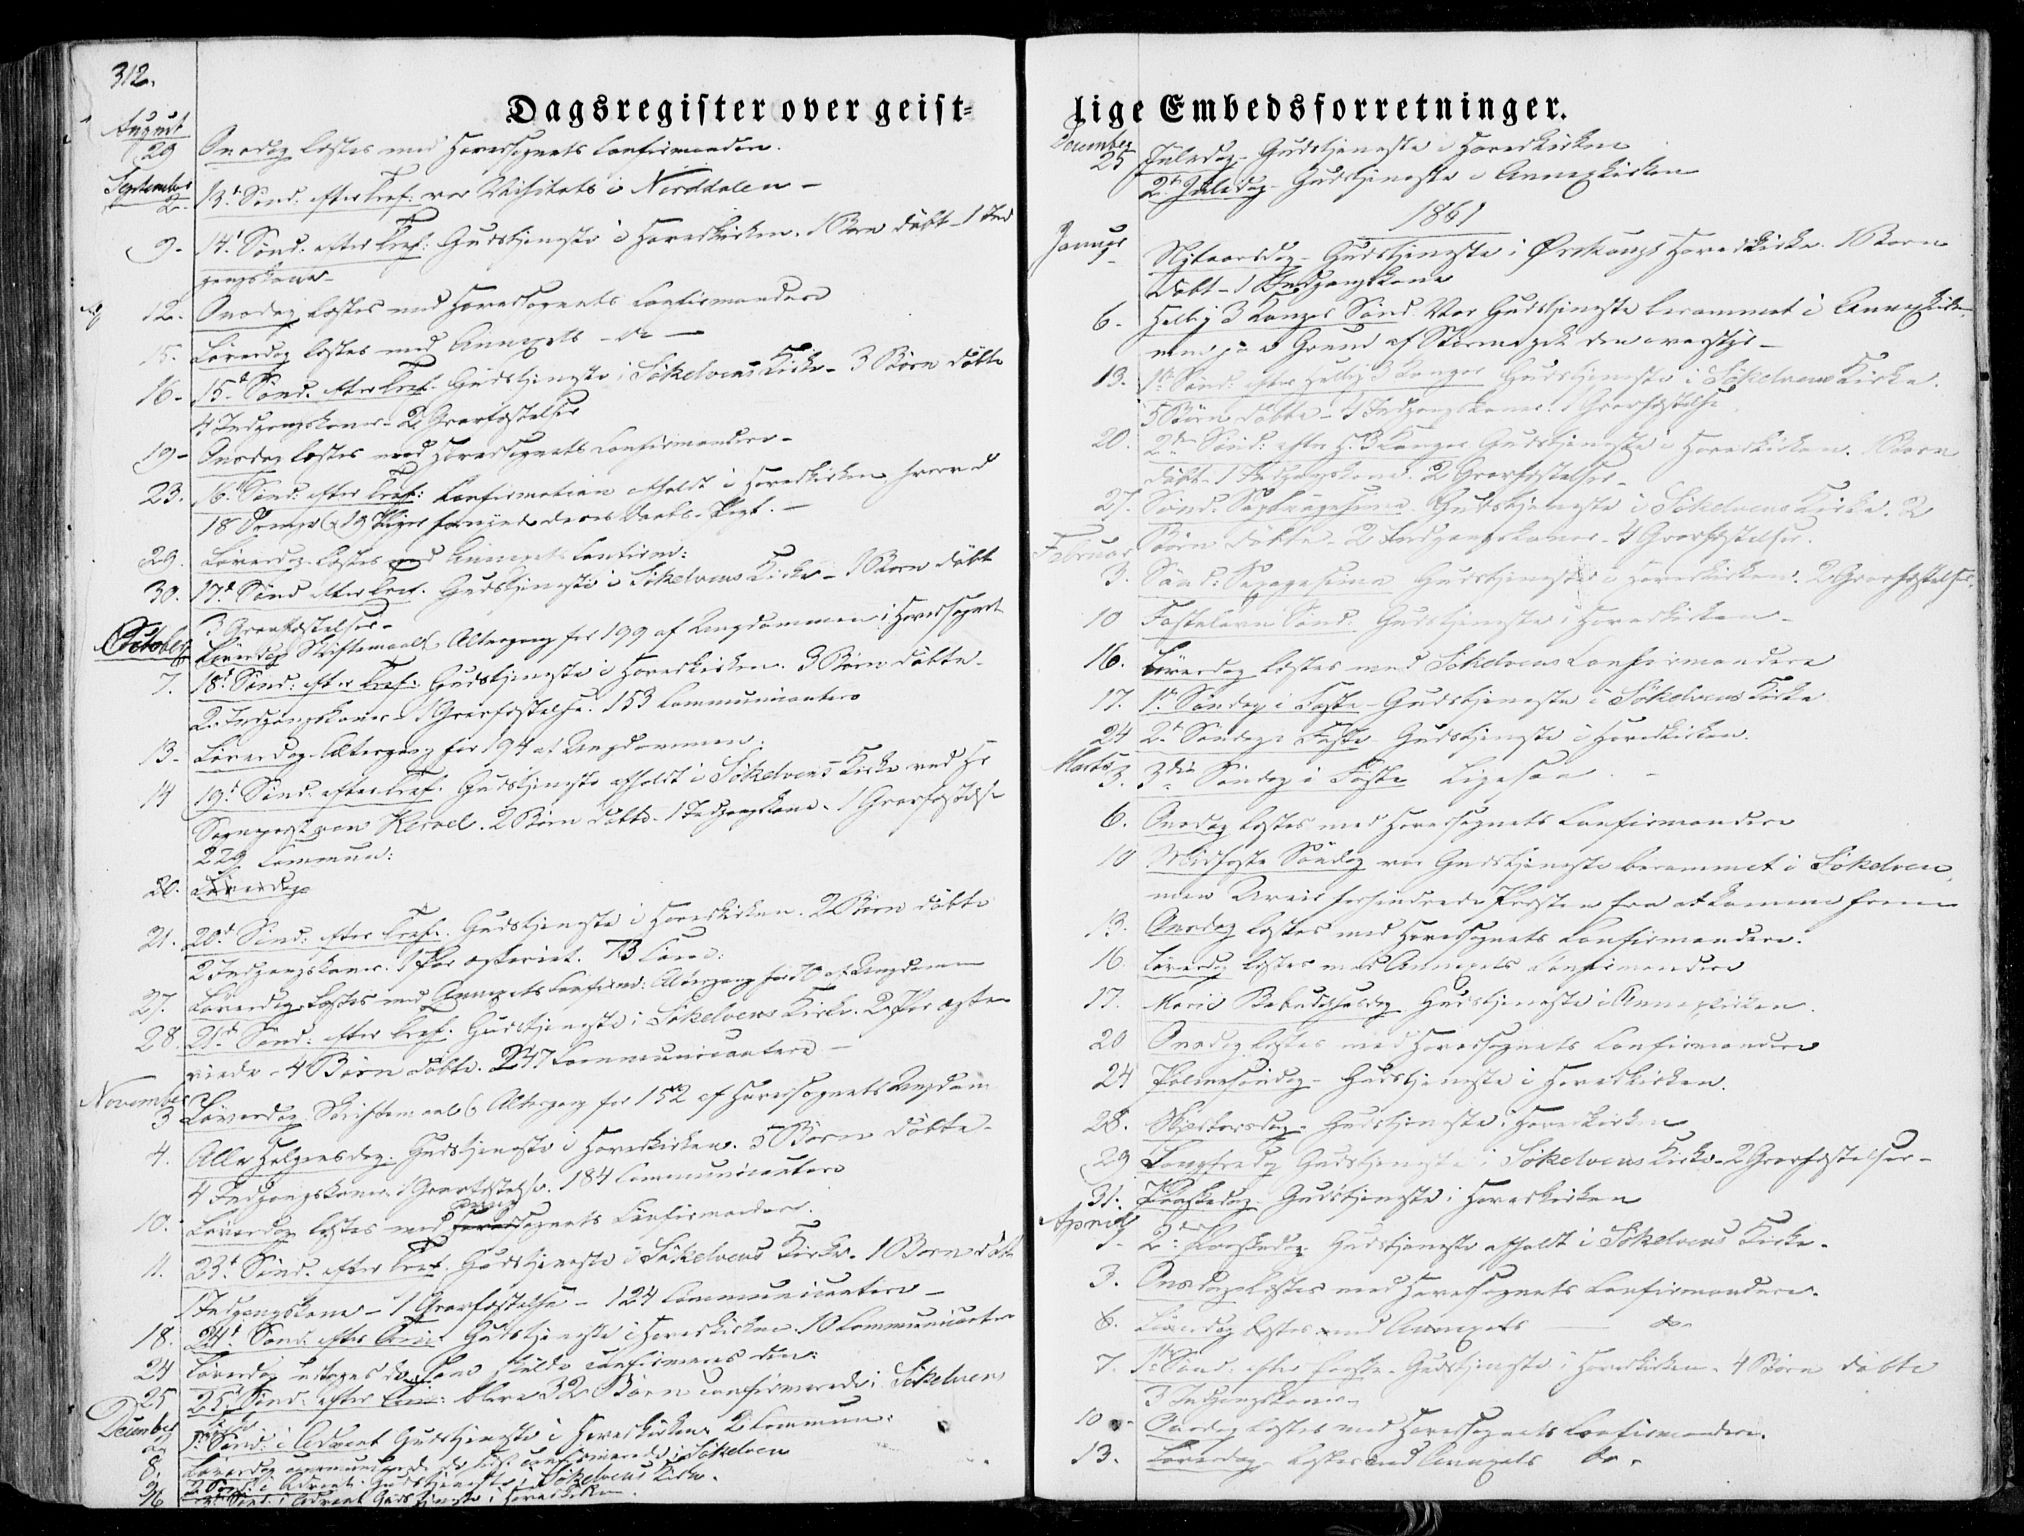 312.
Dagsregister over geist=
August
29 Onsdag læstes med Hovedsognets Confirmander.
September
2. 13d. Sønd. efter Tref: var Visitats i Norddalen –
9. 14d. Sønd. efter Tref: Gudstjeneste i Hovedkirken. 1 Barn døbt – 1 Ind
gangskone –
12. Onsdag læstes med Hovedsognets Confirmander
15. Løverdag læstes med Annexets – do –
16. 15d. Sønd. efter Tref. Gudstjeneste i Søkelvens Kirke – 3 Børn døbte
4 Indgangskoner – 2 Gravfæstelser
19. Onsdag læstes med Hovedsognets Confirmander –
23. 16d. Sønd: efter Tref: Confirmation afholdt i Hovedkirken hvorved
18 Drenge & 19 Piger fornyede deres Daabs-Pagt. –
29. Løverdag læstes med Annexets Confirm:
30. 17d. Sønd. efter Tref. Gudstjeneste i Søkelvens Kirke – 1 Barn døbt
3 Gravfæstelser –
October
6 Løverdag Skriftemaal & Altergang for 199 af Ungdommen i Hovedsognet
7. 18d. Sønd: efter Tref: Gudstjeneste i Hovedkirken. 3 Børn døbte –
2 Indgangskoner – 1 Gravfæstelse. 153 Communicantere
13. Løverdag Altergang for 194 af Ungdommen.
14 19d. Sønd. efter Tref. Gudstjeneste afholdt i Søkelvens Kirke ved Hr
Sognepræst von Kervel. 2 Børn døbte – 1 Indgangskone. 1 Gravfæstelse
229 Commun:
20. Løverdag
21. 20d. Sønd: efter Tref: Gudstjeneste i Hovedkirken. 2 Børn døbte
2 Indgangskoner. 1 Par ægteviet. 73 Com:
27. Løverdag læstes med Annexets Confirm: Altergang for 70 af Ungdommen
28. 21d. Sønd: efter Tref. Gudstjeneste i Søkelvens Kirke. 2 Par ægte
viede – 4 Børn døbte. 247 Communicantere –
November
3 Løverdag Skriftemaal & Altergang for 152 af Hovedsognets Ungdom
4. Alle Helgensdag. Gudstjeneste i Hovedkirken. 5 Børn døbte –
4 Indgangskoner. 1 Gravfæstelse. 184 Communicantere
10. Løverdag læstes med Hovedsognets Confirmander.
11. 23d. Sønd. efter Tref. Gudstjeneste i Søkelvens Kirke. 1 Barn døbt
1 Indgangskone – 1 Gravfæstelse – 124 Communicantere –
18. 24d. Sønd. efter Trin: Gudstjeneste i Hovedkirken. 10 Communicantere
24 Løverdag
25 25d. Sønd. efter Trin: bleve 32 Børn confirmerede i Søkelvens
Kirke
December
2. 1te Sønd: i Advent Gudstjeneste i Hovedkirken. 2 Commun:
8. Løverdag communicerede de sidst confirmerede i Søkelven
9 2 Sønd. i Advent. Gudstjeneste i Søkelvens Kirke.
16 3d. Sønd. i Advent Gudstjeneste i Hovedkirken.
lige Embedsforretninger.
December
25 Juledag – Gudstjeneste i Hovedkirken
2d. Juledag – Gudstjeneste i Annexkirken
1861
Januar
Nytaarsdag – Gudstjeneste i Ørskougs Hovedkirke. 1 Barn
døbt – 1 Indgangskone
6. Hellig 3 Kongers Sønd. Var Gudstjeneste berammet i Annexkirken
men paa Grund af Storm gik den overstyr –
13. 1te Sønd: efter Hellig 3 Konger Gudstjeneste i Søkelvens Kirke.
5 Børn døbte – 3 Indgangskoner. 1 Gravfæstelse
20. 2den Sønd: efter H. 3 Konger Gudstjeneste i Hovedkirken. 1 Barn
døbt – 1 Indgangskone. 2 Gravfæstelser –
27. Sønd. Septuagesima. Gudstjeneste i Søkelvens Kirke. 2
Børn døbte – 2 Indgangskoner – 4 Gravfæstelser.
Februar
3. Sønd: Sexagesima Gudstjeneste i Hovedkirken. 2 Gravfæstelser.
10 Fastelavn Sønd. Gudstjeneste i Hovedkirken –
16. Løverdag læstes med Søkelvens Confirmandere
17. 1te Søndag i Faste – Gudstjeneste i Søkelvens Kirke
24 2d. Søndag i Faste Gudstjeneste i Hovedkirken.
Marts
3. 3die Søndag i Faste Ligesaa. –
6. Onsdag læstes med Hovedsognets Confirmandere
10 Midfaste Søndag var Gudstjeneste berammet i Søkelven,
men Uveir forhindrede Præsten fra at komme frem
13. Onsdag læstes med Hovedsognets Confirmandere.
16. Løverdag læstes med Annexets Confirmandere
17. Mariæ Bebudelsesdag Gudstjeneste i Annexkirken.
20 Onsdag læstes med Hovedsognets Confirmandere
24 Palmesøndag – Gudstjeneste i Hovedkirken.
28. Skjærtorsdag – Gudstjeneste i Hovedkirken
29 Langfredag Gudstjeneste i Søkelvens Kirke – 2 Gravfæstelser –
31. Paaskedag – Gudstjeneste i Hovedkirken
April
1. 2den Paaskedag. Gudstjeneste afholdt i Søkelvens Kirke.
3. Onsdag læstes med Hovedsognets Confirmandere.
6. Løverdag læstes med Annexets – do –
7. 1te Sønd. efter Paaske. Gudstjeneste i Hovedkirken – 4 Børn døbte
3 Indgangskoner –
10. Onsdag læstes med Hovedsognets Confirmandere.
13. Løverdag – læstes med Annexets do –